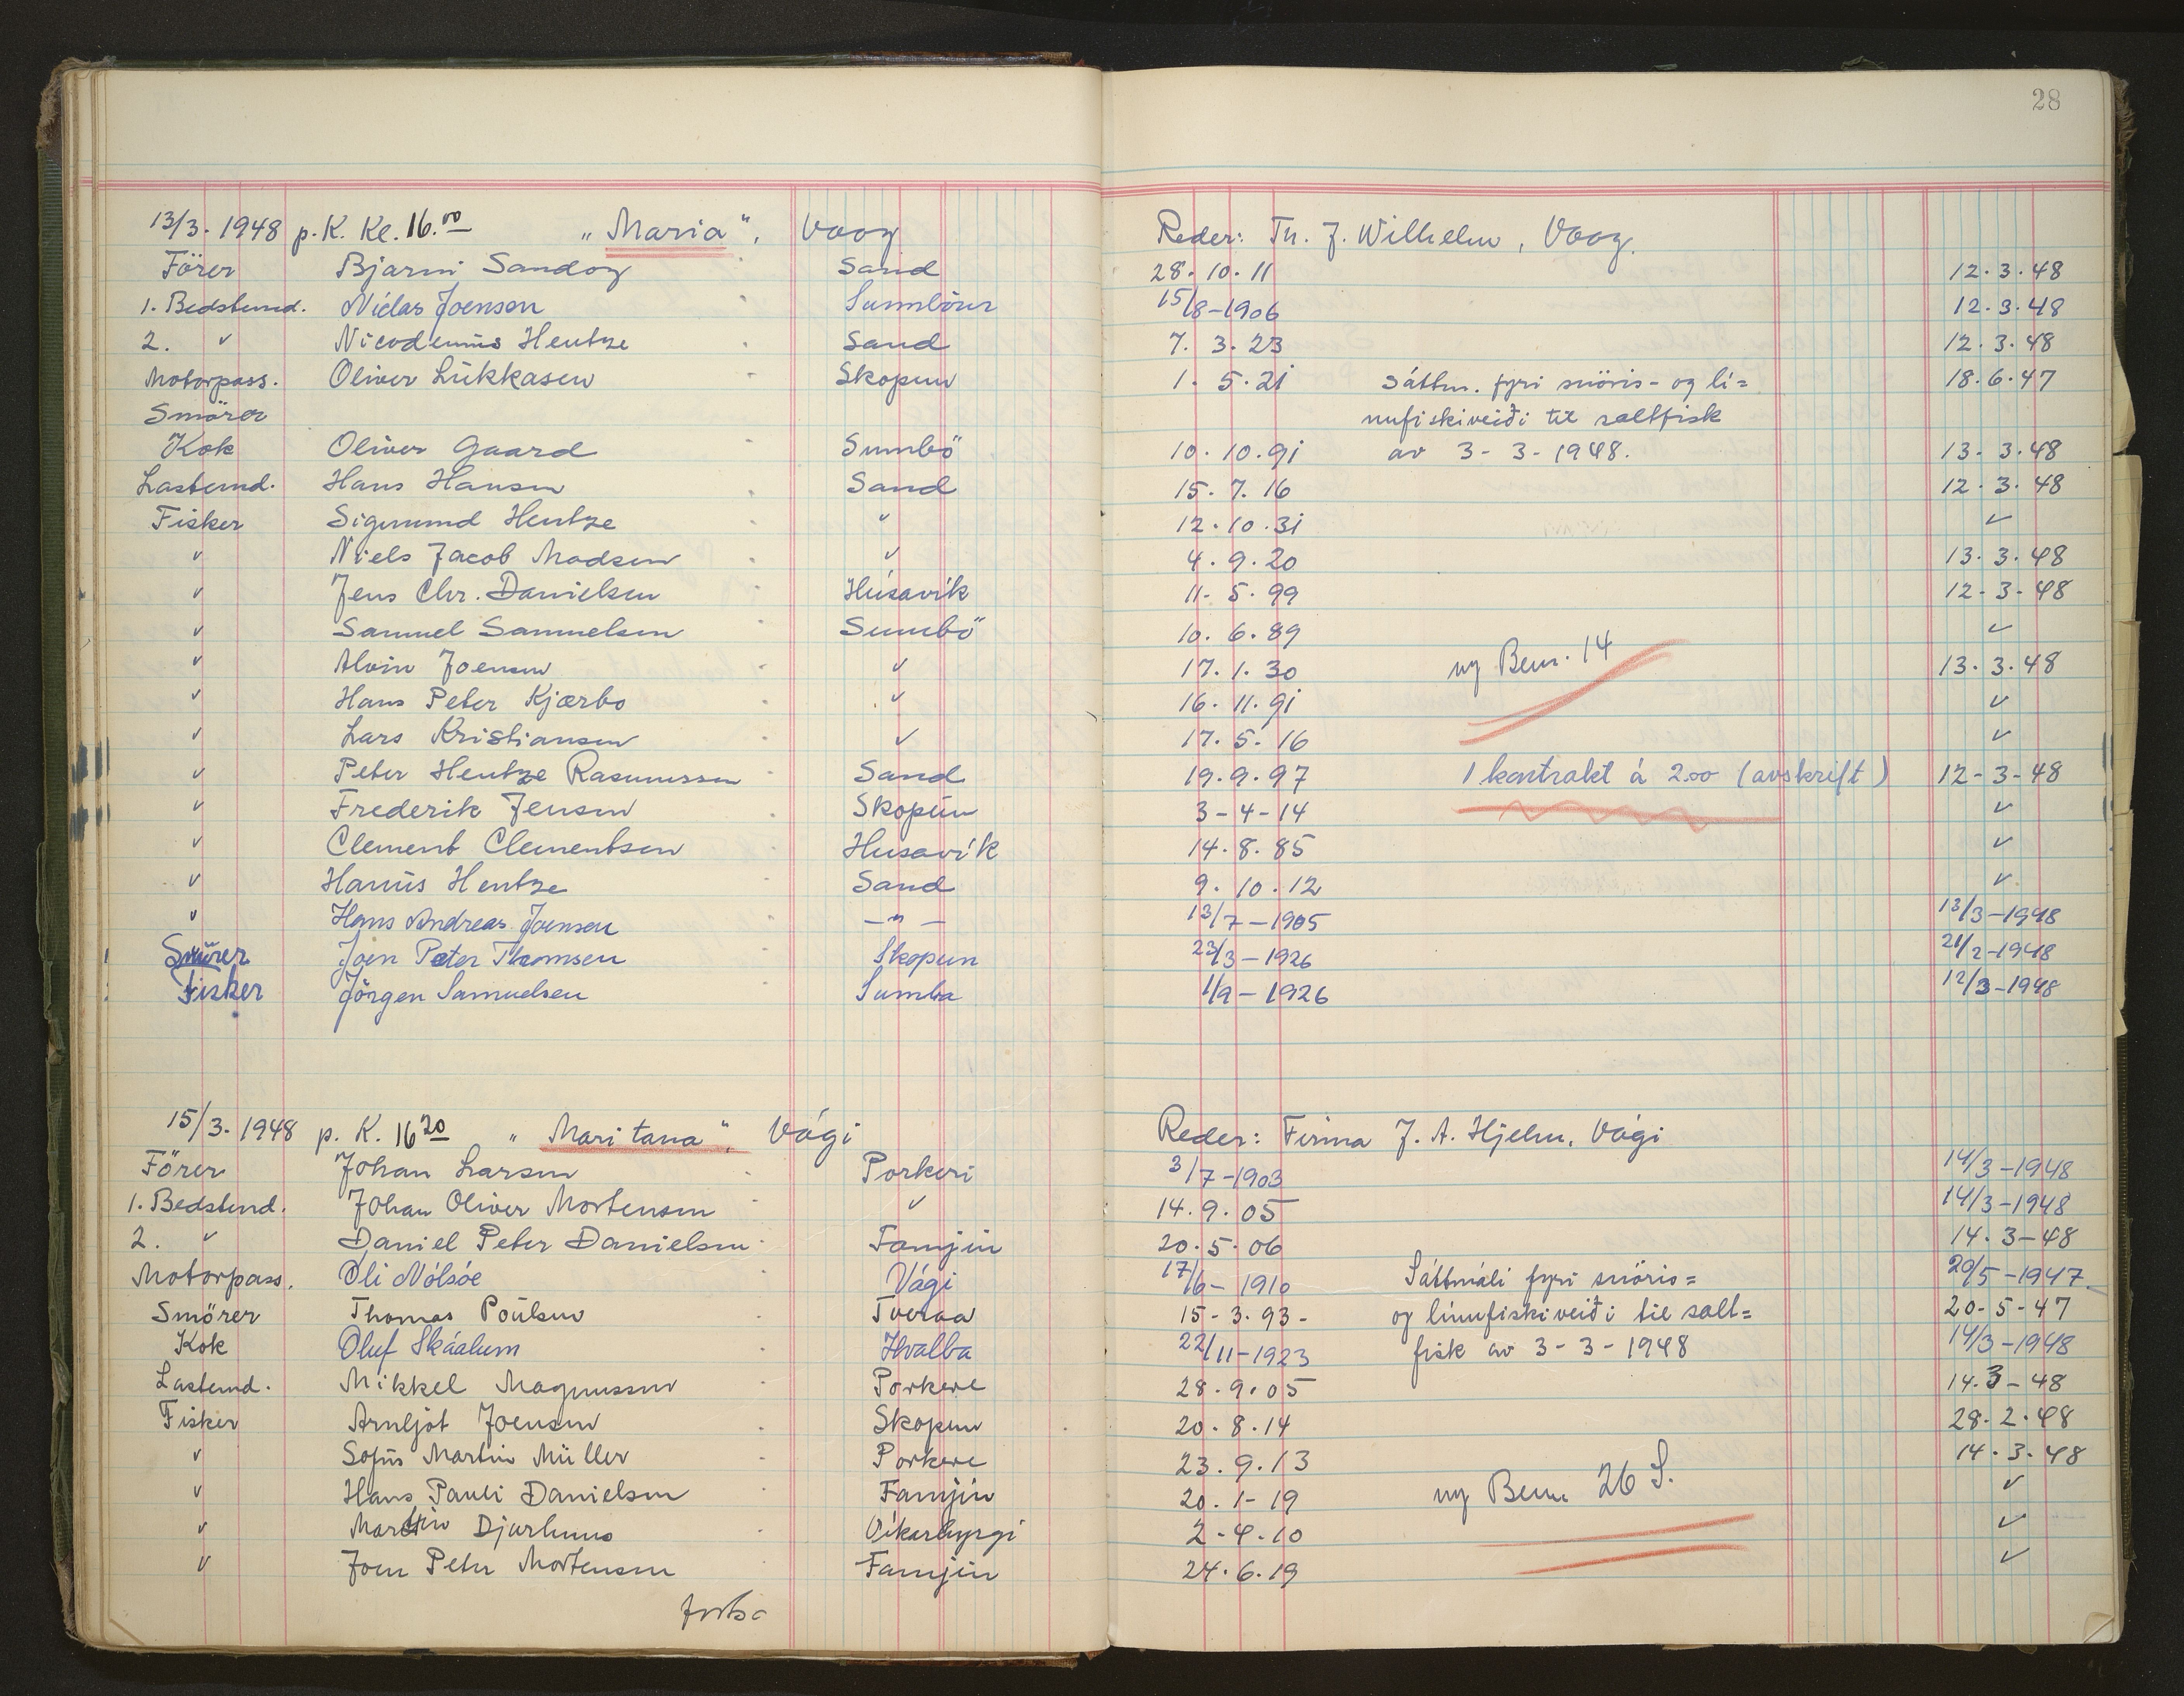 28
13/3. 1948 p. K. Kl. 16.00 „Maria“, Vaag Reder: Th. J. Wilhelm, Vaag.
Förer Bjarni Sandoy Sand 28. 10. 11 12. 3. 48
1. Bedstmd. Niclas Joensen Sumböur 15/8-1906 12. 3. 48
2. " Nicodemus Hentze Sand 7. 3. 23 12. 3. 48
Motorpass. Oliver Lükkasen Skopun 1. 5. 21 Sáttm. fyri snöris- og lí= 18. 6. 47
Smörer nufiskiveiði til saltfisk
Kok Oliver Gaard Sumbö 10. 10. 91 av 3-3-1948. 13. 3. 48
Lastemd. Hans Hansen Sand 15. 7. 16 12. 3. 48
Fisker Sigmund Hentze " 12. 10. 31 "
" Niels Jacob Madsen " 4. 9. 20 13. 3. 48
" Jens Chr. Danielsen Húsavík 11. 5. 99 12-3-48
" Samuel Samuelsen Sumbö 10. 6. 89 "
" Alvin Joensen " 17. 1. 30 ny Bem. 14 13. 3. 48
" Hans Peter Kjærbo " 16. 11. 91 "
" Lars Kristiansen " 17. 5. 16 "
" Peter Hentze Rasmussen Sand 19. 9. 97 1 kontrakt á 2.00 (avskrift) 12-3-48
" Frederik Jensen Skopun 3-4-14 "
" Clement Clementsen Husavík 14. 8. 85 "
" Hanus Hentze Sand 9. 10. 12 "
" Hans Andreas Joensen -"- 13/7-1905 13/3-1948
Smörer Joen Peter Thomsen Skopun 23/3-1926 21/2-1948
Fisker Jörgen Samuelsen Sumba 1/9-1926 12/3-1948
15/3. 1948 p. K. 16 20 „Maritana“, Vági Reder: Firma J. A. Hjelm, Vági
Förer Johan Larsen Porkeri 3/7-1903 14/3-1948
1. Bedstmd. Johan Oliver Mortensen " 14. 9. 05 14/3-1948
2. " Daniel Peter Danielsen Famjin 20. 5. 06 14. 3-48
Motorpass. Oli Nólsöe Vági 17/6-1910 Sáttmáli fyri snöris= 20/5-1947
Smörer Thomas Poulsen Tveraa 15-3-93- og línufiskiveiði til salt= 20-5-47
Kok Oluf Skáalum Hvalba 22/11-1923 fisk av 3-3-1948 14/3-1948
Lastemd. Mikkel Magnussen Porkere 28. 9. 05 14. 3-48
Fisker Arnljot Joensen Skopun 20. 8. 14 28. 2. 48
" Sofus Martin Müller Porkere 23. 9. 13 14. 3. 48
" Hans Pauli Danielsen Famjin 20. 1-19 ny Bem. 26 S. "
" Martin Djurhuus Oikarbyrgi 2-4-10 "
" Joen Peter Mortensen Famjin 24. 6. 19 "
forts.